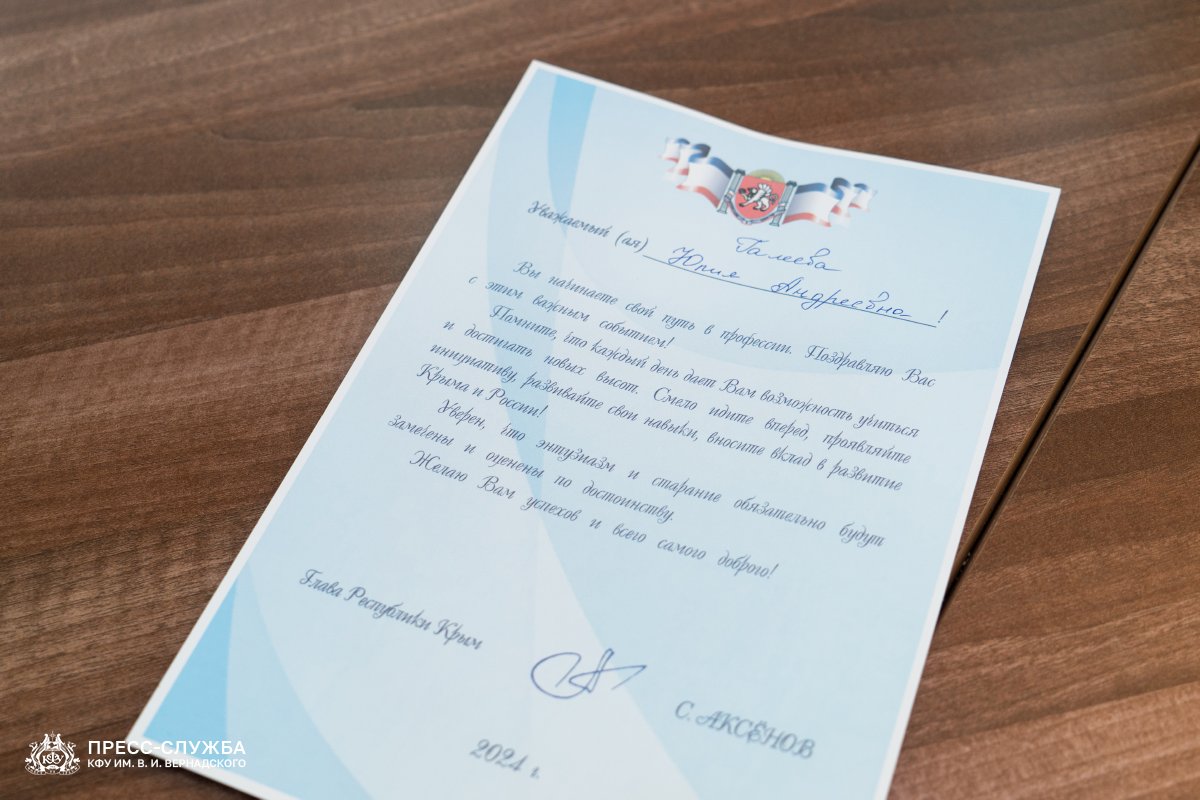 Галеева
Уважаемый (ая) Юлия Андреевна !
Вы начинаете свой путь в профессии. Поздравляю Вас
с этим важным событием!
Помните, что каждый день дает Вам возможность учиться
и достигать новых высот. Смело идите вперед, проявляйте
инициативу, развивайте свои навыки, вносите вклад в развитие
Крыма и России!
Уверен, что энтузиазм и старание обязательно будут
замечены и оценены по достоинству.
Желаю Вам успехов и всего самого доброго!
Глава Республики Крым
С. АКСЁНОВ
2024 г.
ПРЕСС-СЛУЖБА
КФУ ИМ. В. И. ВЕРНАДСКОГО